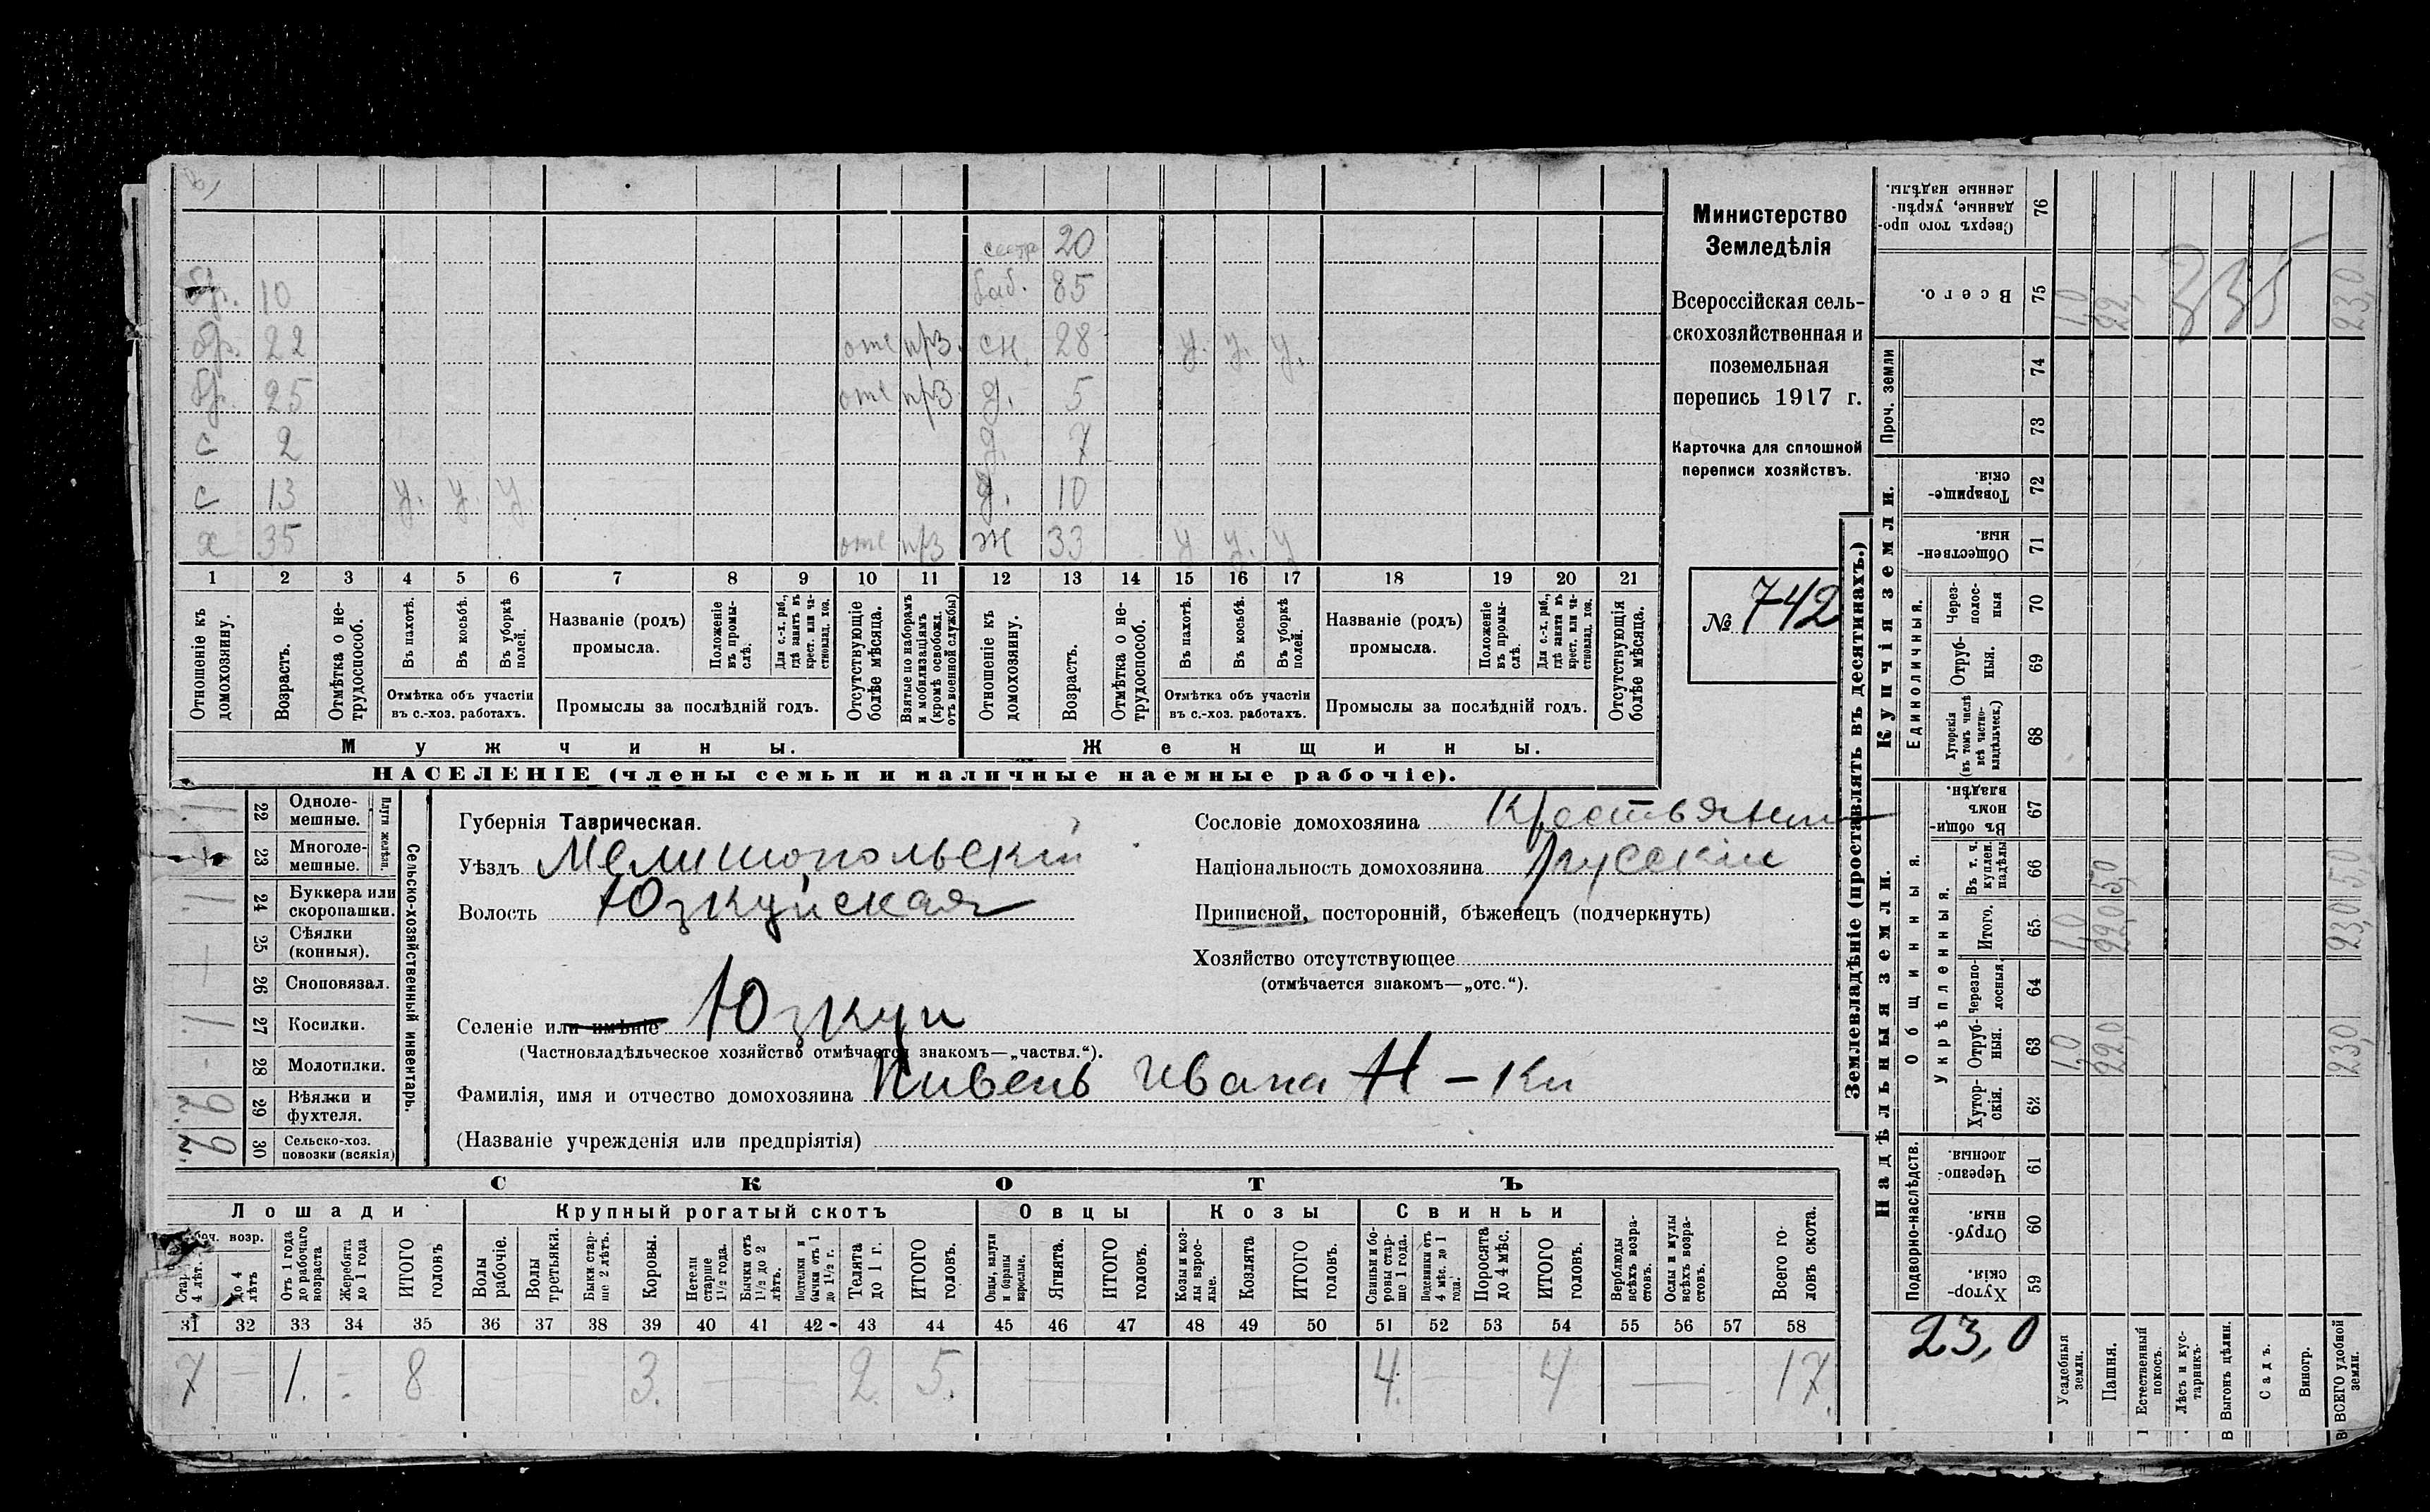 сестр 20
бр. 10 баб. 85
бр. 22 отс прз. сн. 28 у. у. у.
бр. 25 отс прз д. 5
с 2 д 7
с 13 у. у. у д. 10
х 35 отс прз ж 33 у у. у
1 2 3 4 5 6 7 8 9 10 11 12 13 14 15 16 17 18 19 20 21
Отношеніе къ домохозяину.
Возрастъ.
Отмѣтка о не-трудоспособ.
Въ пахотѣ.
Въ косьбѣ.
Въ уборкѣ полей.
Отмѣтка объ участіи
въ с.-хоз. работахъ.
Названіе (родъ)
промысла.
Положеніе въ промы-слѣ.
Для с.-х. раб., гдѣ занятъ въ крест. или ча-стновлад. хоз.
Промыслы за послѣдній годъ.
Отсутствующіе болѣе мѣсяца.
Взятые по наборамъ и мобилизаціямъ (кромѣ освобожд. отъ военной службы)
Отношеніе къ домохозяину.
Возрастъ.
Отмѣтка о не-трудоспособ.
Въ пахотѣ.
Въ косьбѣ.
Въ уборкѣ полей.
Отмѣтка объ участіи
въ с.-хоз. работахъ.
Названіе (родъ)
промысла.
Положеніе въ промы-слѣ.
Для с.-х. раб., гдѣ занята въ крест. или ча-стновлад. хоз.
Промыслы за послѣдній годъ.
Отсутствующія болѣе мѣсяца.
Мужчины. Женщины.
НАСЕЛЕНІЕ (члены семьи и наличные наемные рабочіе).
Министерство
Земледѣлія
Всероссійская сель-
скохозяйственная и
поземельная
перепись 1917 г.
Карточка для сплошной
переписи хозяйствъ.
№ 742
Сельско-хозяйственный инвентарь.
Плуги желѣзн.
22 Одноле-мешные. 1
23 Многоле-мешные.
24 Буккера или скоропашки. 1
25 Сѣялки (конныя). —
26 Сноповязал.
27 Косилки. 1.
28 Молотилки. -
29 Вѣялки и фухтеля.
30 Сельско-хоз. повозки (всякія)
Губернія Таврическая.
Уѣздъ Мелитопольскій
Волость Юзкуйская
Селеніе или имѣніе Юзкуи
(Частновладѣльческое хозяйство отмѣчается знакомъ—„частвл.“).
Фамилія, имя и отчество домохозяина Пивень Ивана Н-ки
(Названіе учрежденія или предпріятія)
Сословіе домохозяина Крестьянин
Національность домохозяина русскій
Приписной, посторонній, бѣженецъ (подчеркнуть)
Хозяйство отсутствующее
(отмѣчается знакомъ—„отс.“).
СКОТЪ
Лошади Крупный рогатый скотъ Овцы Козы Свиньи
боч. возр.
Стар 4 лѣт.
до 4 лѣтъ
Отъ 1 года до рабочаго возраста
Жеребята до 1 года
ИТОГО головъ
Волы рабочіе.
Волы третьяки.
Быки стар-ше 2 лѣтъ.
Коровы.
Нетели старше 1½ года.
Бычки отъ 1½ до 2 лѣтъ.
Подтелки и бычки отъ 1 до 1½ г.
Телята до 1 г.
ИТОГО головъ.
Овцы, валухи и бараны взрослые.
Ягнята.
ИТОГО головъ.
Козы и коз-лы взрос-лые.
Козлята
ИТОГО головъ.
Свиньи и бо-ровы стар-ше 1 года.
Подсвинки отъ 4 мѣс. до 1 года.
Поросята до 4 мѣс.
ИТОГО головъ.
Верблюды всѣхъ возра-стовъ.
Ослы и мулы всѣхъ возра-стовъ.
Всего го-ловъ скота.
31 32 33 34 35 36 37 38 39 40 41 42 43 44 45 46 47 48 49 50 51 52 53 54 55 56 57 58
7 — 1. - 8 — 3. — 2. 5. — — 4. — 4 — 17.
Землевладѣніе (проставлять въ десятинахъ.)
Надѣльныя земли. Купчія земли. Проч. земли
Подворно-наслѣдств.
Общинныя.
Укрѣпленныя.
Единоличныя.
59 Хутор-скія.
60 Отруб-ныя.
61 Черезпо-лосныя.
62 Хутор-скія.
63 Отруб-ныя. 1,0 22,0 23,0
64 Черезпо-лосныя.
65 Итого. 1,0 22,0 23,0
66 Въ т. ч. куплен. надѣлы 5,0 5,0
67 Въ общи-номъ владѣн.
68 Хуторскія (въ томъ числѣ всѣ частно-владѣльческ.)
69 Отруб-ныя.
70 Через-полос-ныя
71 Обществен-ныя.
72 Товарище-скія.
73
74
75 Всего. 1,0 22, 23,0
335
76 Сверхъ того про-данные, укрѣп-ленные надѣлы.
23,0
Усадебныя земли.
Пашня.
Естественный покосъ.
Лѣсъ и кус-тарникъ.
Выгонъ цѣлин.
Садъ.
Виногр.
ВСЕГО удобной земли.